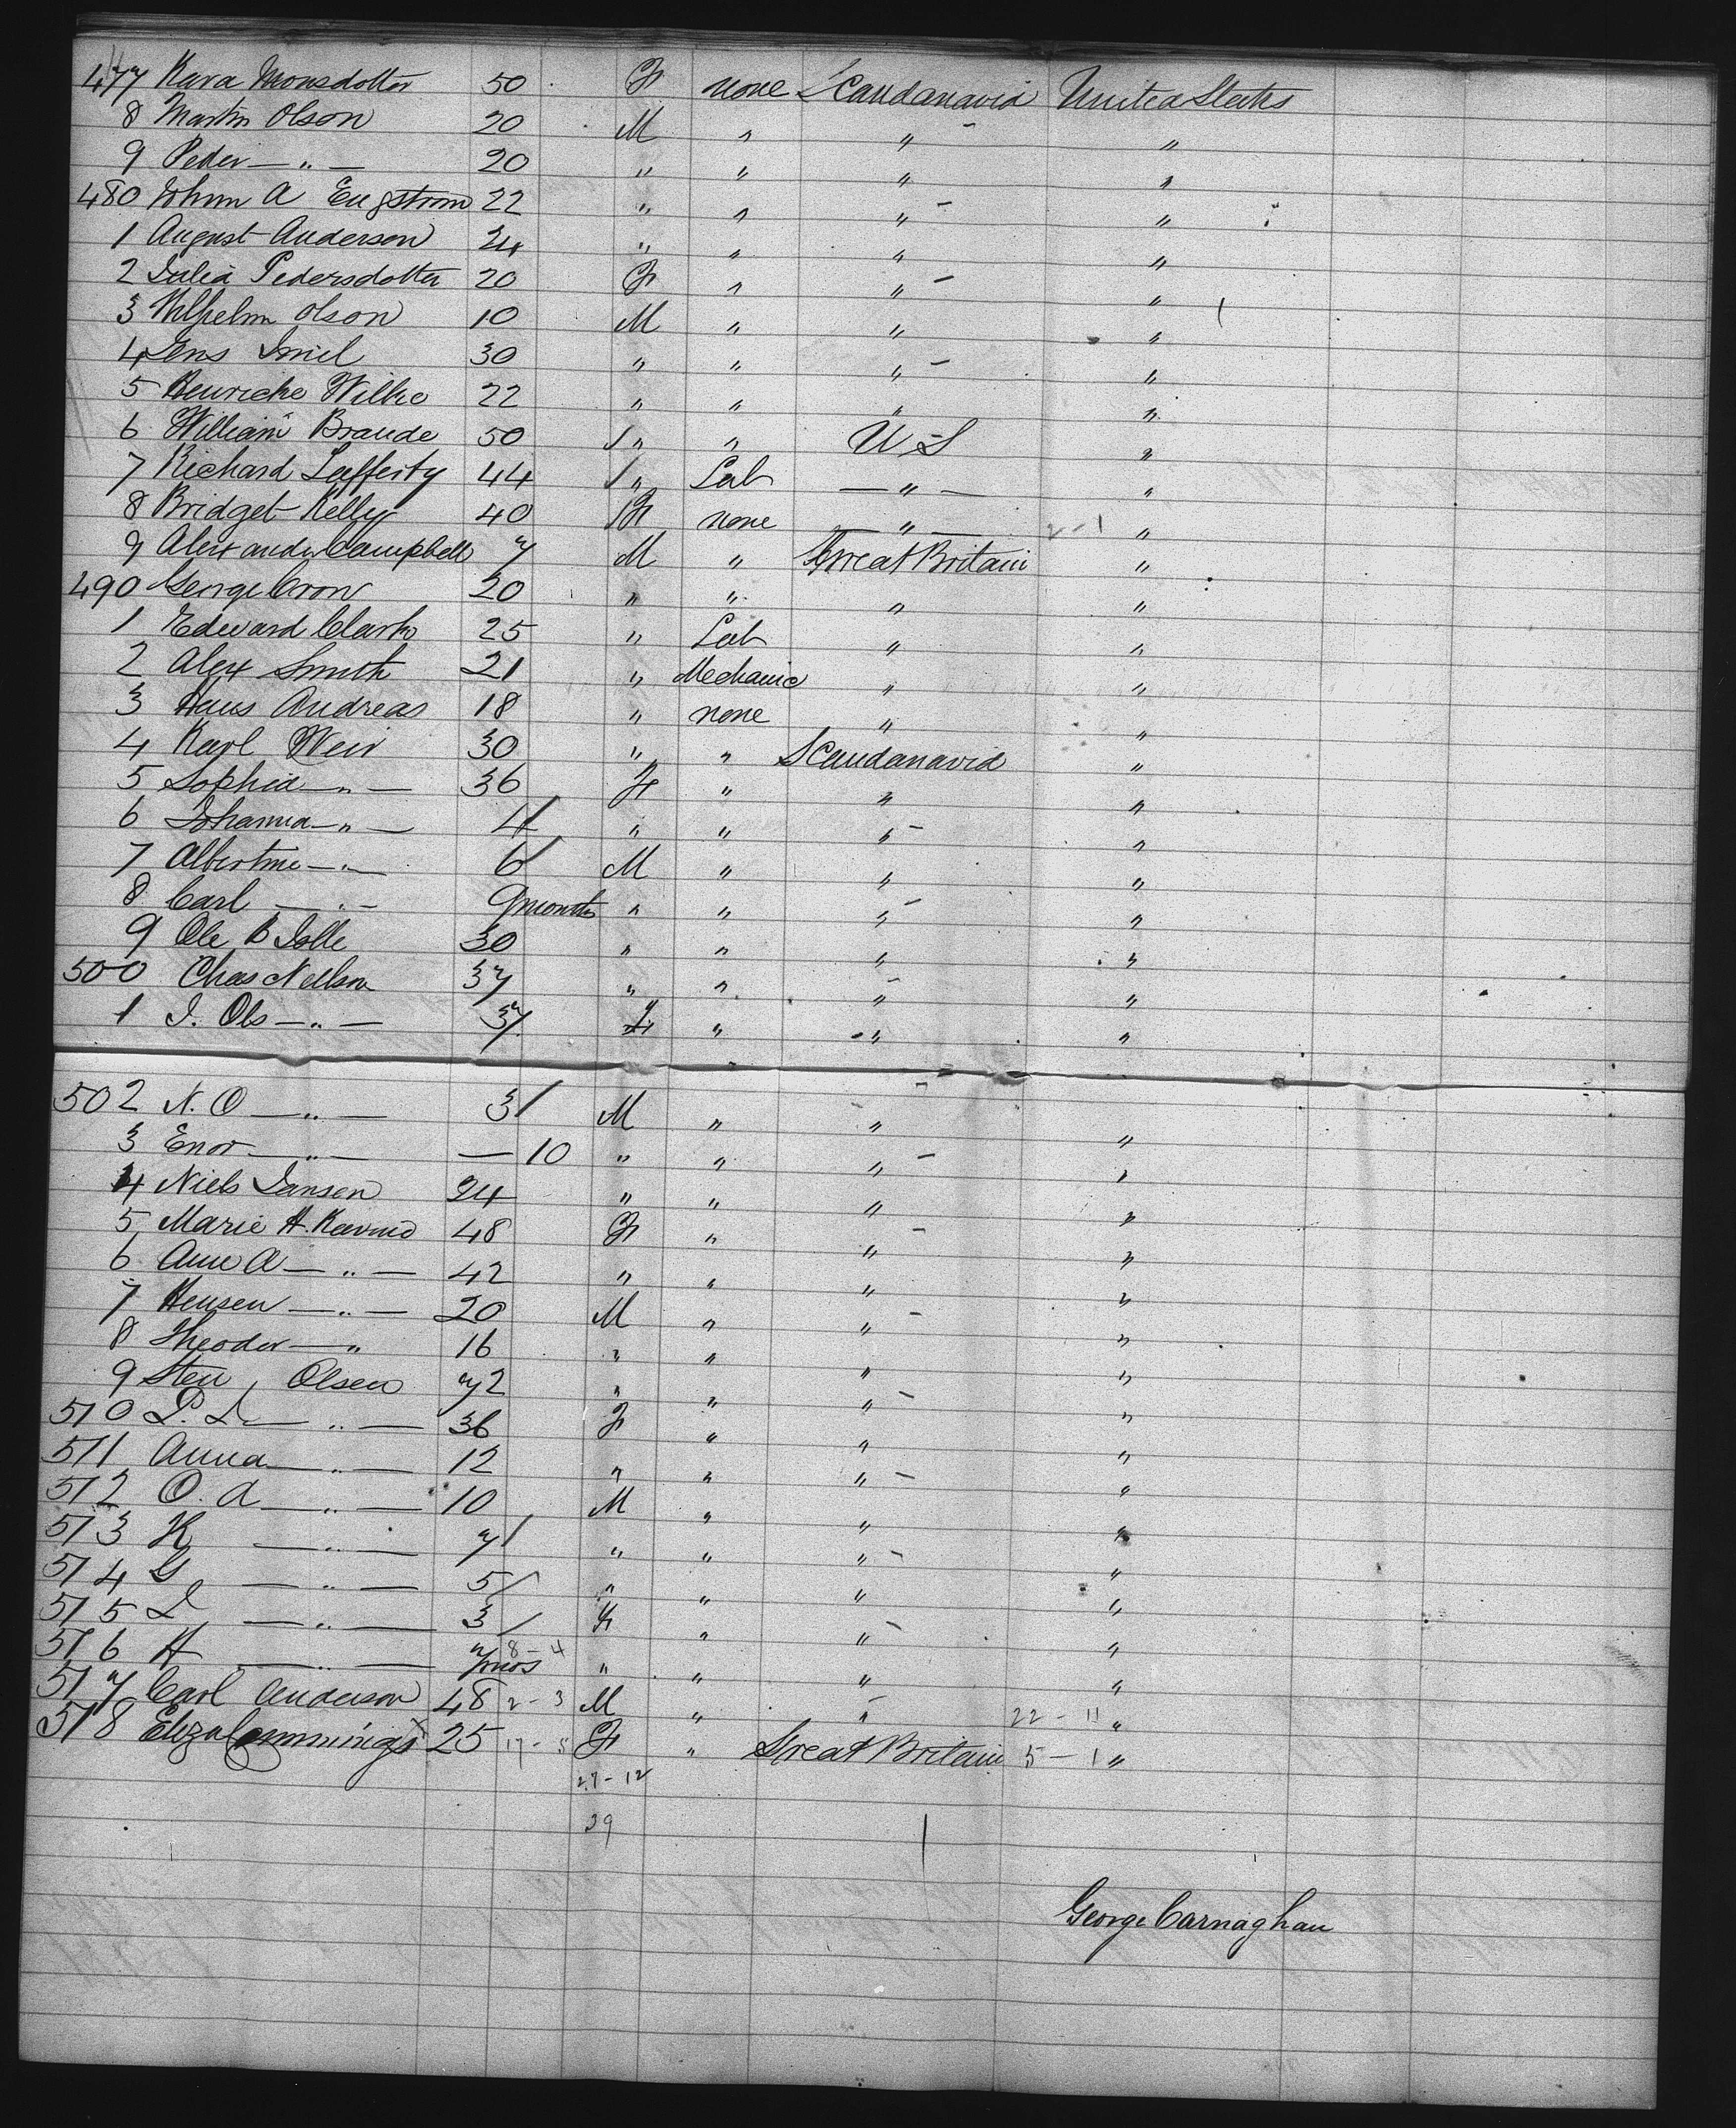 477 Kara Monsdotter 50 F none Scandanavia United States
8 Martin Olson 20 M " " "
9 Peder — " — 20 " " " "
480 Johan A Engstrom 22 " " " "
1 August Anderson 24 " " " "
2 Julia Pedersdotter 20 F " " "
3 Wilhelm Olson 10 M " " "
4 Jens 30 " " " "
5 Henriche Wilke 22 " " " "
6 William Braude 50 " " U S "
7 Richard Lafferty 44 " Lab — " — "
8 Bridget Kelly 40 F none — " — 2 - 1 "
9 Alexander Campbell 7 M " Great Britain "
490 George Cron 20 " " " "
1 Edward Clark 25 " Lab " "
2 Alex Smith 21 " Mechanic " "
3 Hans Andreas 18 " none " "
4 Karl Weir 30 " " Scandanavia "
5 Sophia — " — 36 F " " "
6 Johanna — " — 4 " " " "
7 Albertine — " — 6 M " " "
8 Carl — " — 9 months " " " "
9 Ole B 30 " " " "
500 Chas Nellson 37 " " " "
1 J. Ols — " — 37 F " " "
502 N. O — " — 3 M " "  "
3 Enor — " — — 10 " " " "
4 Niels Jansen 24 " " " "
5 Marie H. 48 F " " "
6 Ann A — " — 42 " " " "
7 Hensen — " — 20 M " " "
8 Theodor — " 16 " " " "
9 Sten Olsen 72 " " " "
510 P. L — " — 36 F " " "
511 Anna — " — 12 " " " "
512 O. A — " — 10 M " " "
513 K — " — 7 " " " "
514 G — " — 5 " " " "
515 L — " — 3 F " " "
516 H — " — 7 mos 8 - 4 " " " "
517 Carl Anderson 48 2 - 3 M " " 22 - 11 "
518 Eliza Cummings 25 17 - 5 F " Great Britain 5 - 1 "
27 - 12
39
George Carnaghan